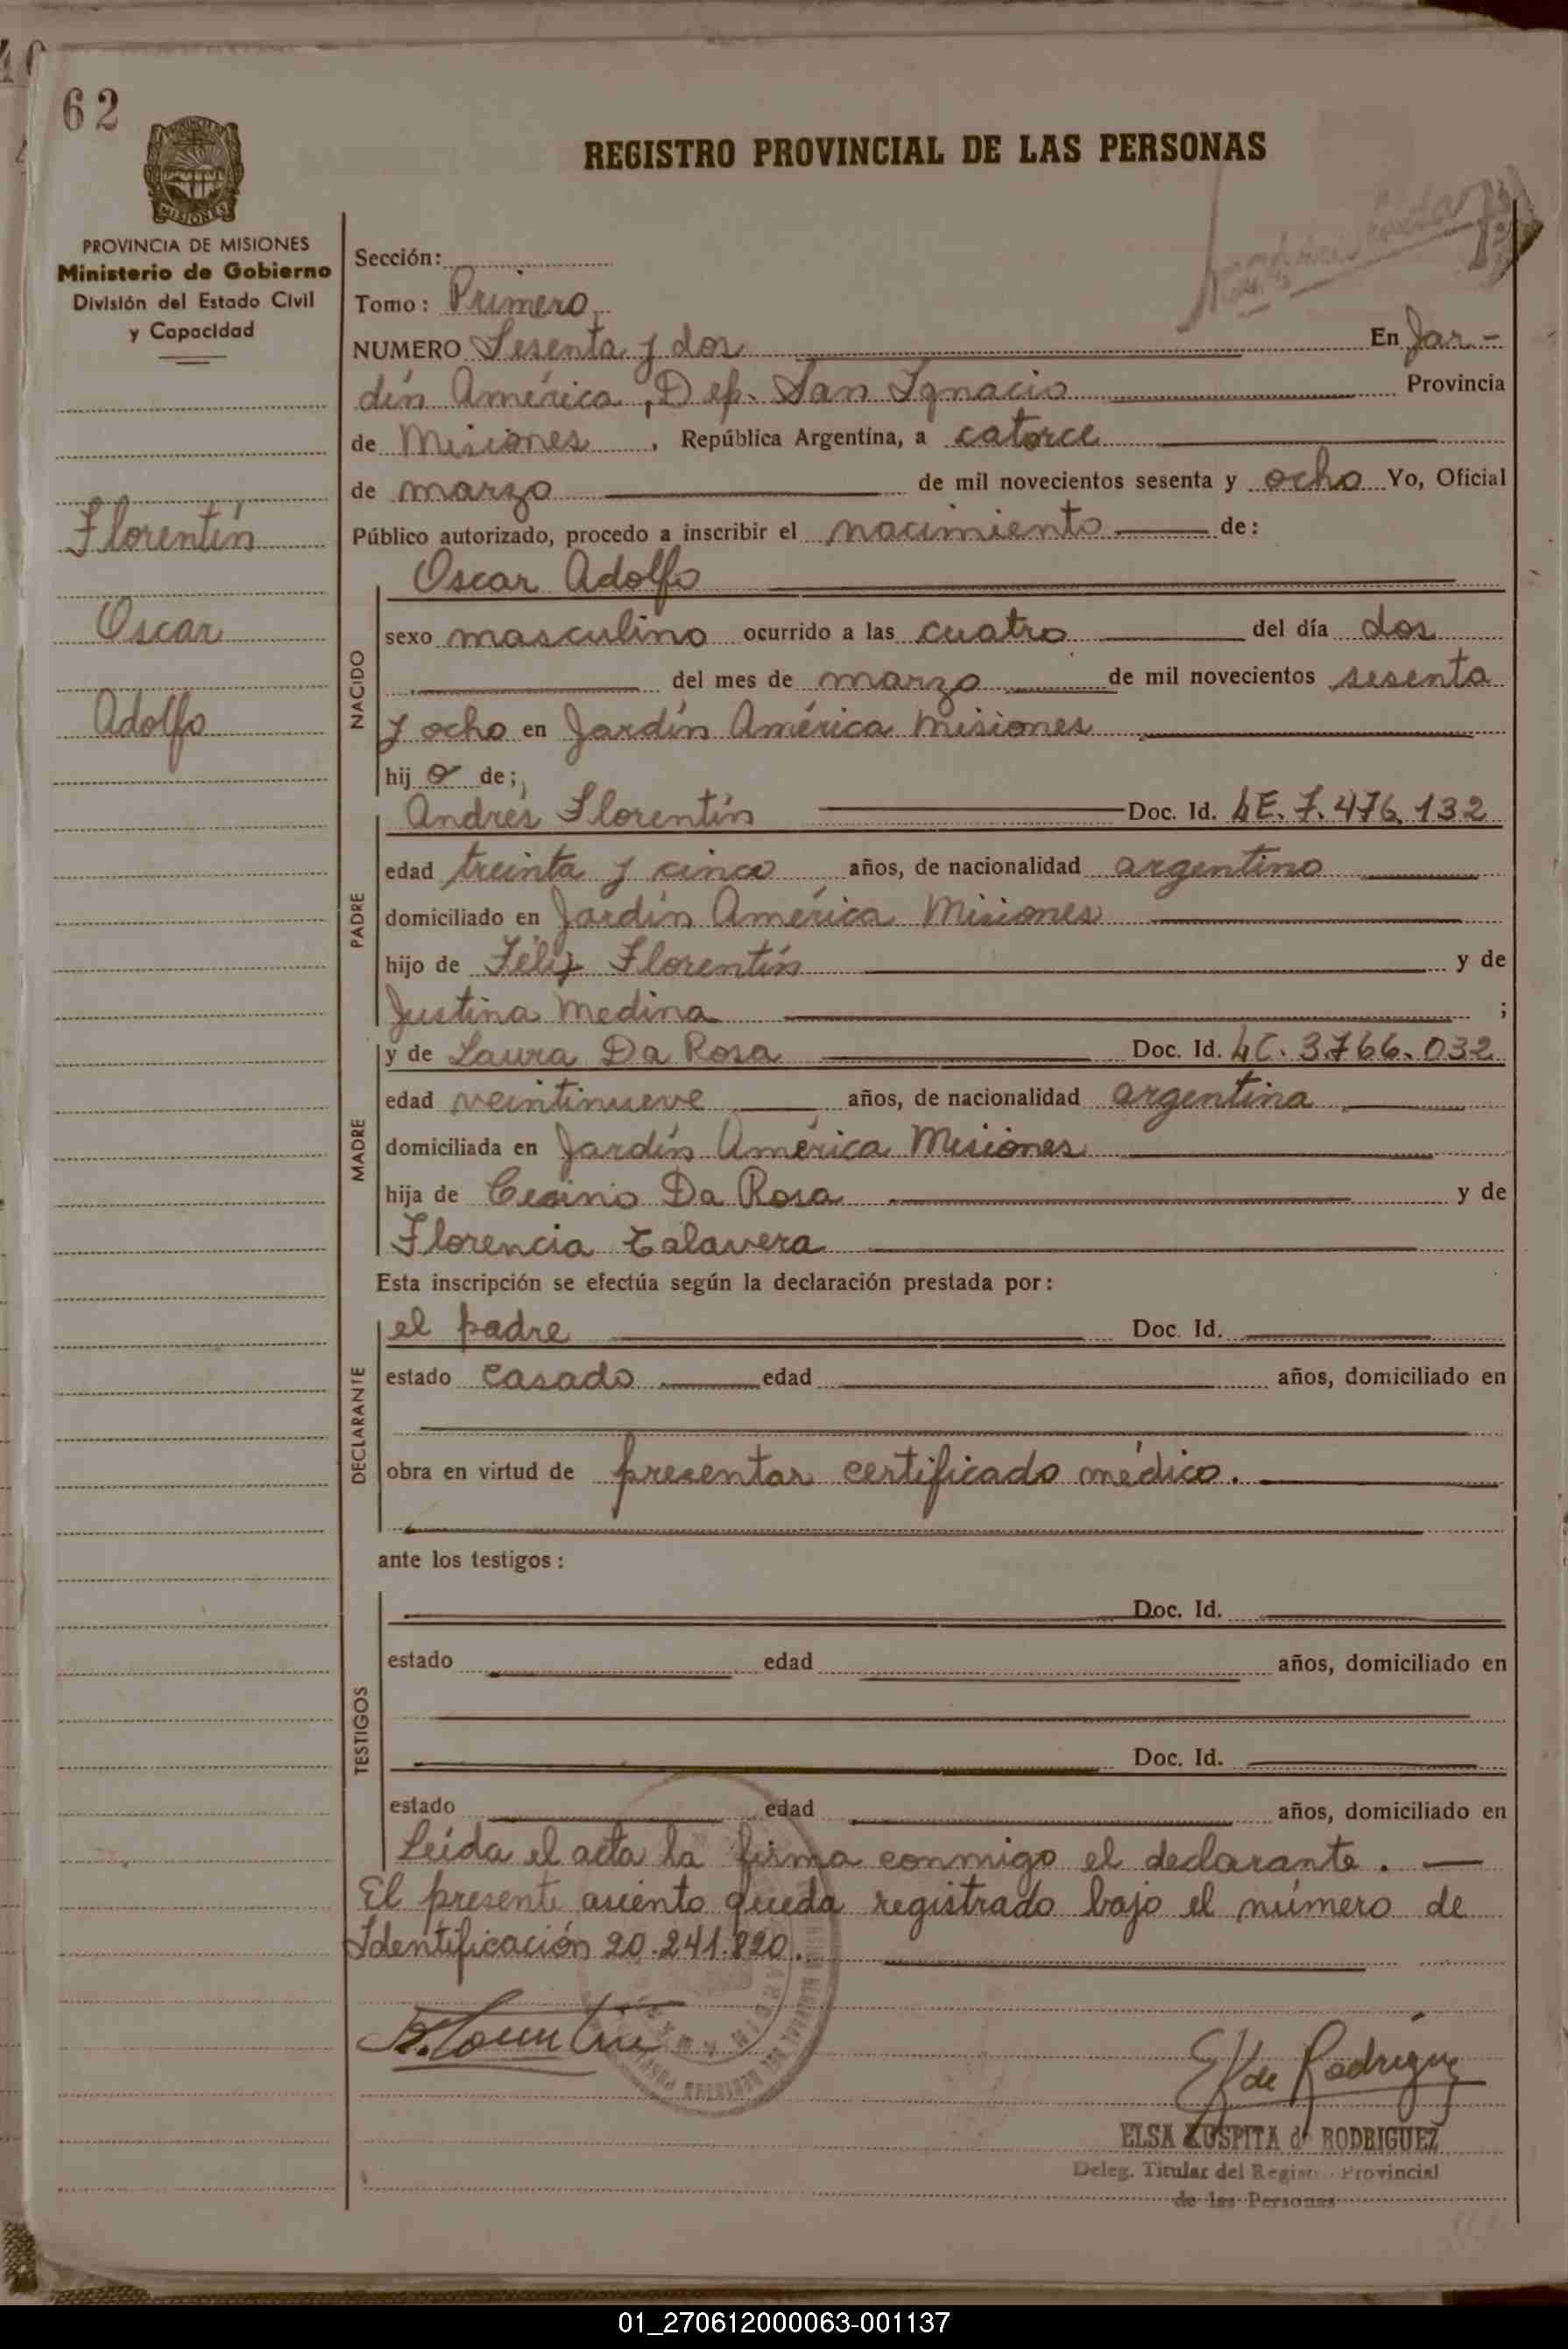 62
REGISTRO PROVINCIAL DE LAS PERSONAS
MISIONES
PROVINCIA DE MISIONES
Ministerio de Gobierno
División del Estado Civil
y Capacidad
Florentín
Oscar
Adolfo
Sección:
Tomo: Primero
NUMERO Sesenta y dos En Jar-
dín América, Dep. San Ignacio Provincia
de Misiones, República Argentina, a catorce
de marzo de mil novecientos sesenta y ocho Yo, Oficial
Público autorizado, procedo a inscribir el nacimiento de:
Oscar Adolfo
NACIDO
sexo masculino ocurrido a las cuatro del día dos
del mes de marzo de mil novecientos sesenta
y ocho en Jardín América Misiones
hij o de;
PADRE
Andrés Florentín Doc. Id. LE. 7.476.132
edad treinta y cinco años, de nacionalidad argentino
domiciliado en Jardín América Misiones
hijo de Féliz Florentín y de
Justina Medina ;
MADRE
y de Laura Da Rosa Doc. Id. LC. 3.766.032
edad veintinueve años, de nacionalidad argentina
domiciliada en Jardín América Misiones
hija de Da Rosa y de
Florencia Talavera
Esta inscripción se efectúa según la declaración prestada por:
DECLARANTE
el padre Doc. Id.
estado casado edad años, domiciliado en
obra en virtud de presentar certificado médico.
ante los testigos:
TESTIGOS
Doc. Id.
estado edad años, domiciliado en
Doc. Id.
estado edad años, domiciliado en
Leída el acta la firma conmigo el declarante.
El presente asiento queda registrado bajo el número de
Identificación 20.241.820.
E K de Rodriguez
ELSA KUSPITA d' RODRIGUEZ
Deleg. Titular del Registro Provincial
de las Personas
01_270612000063-001137